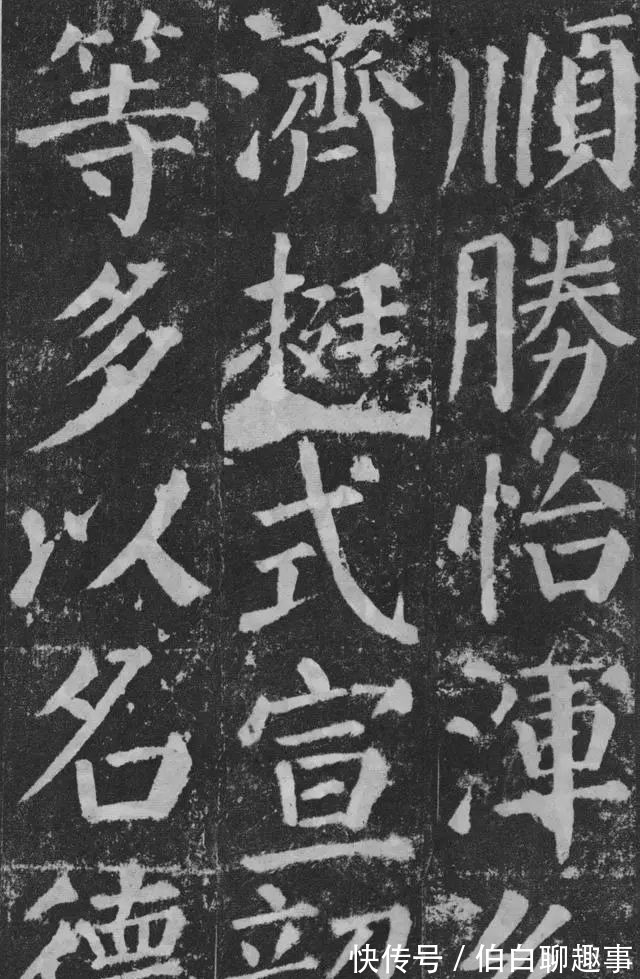 順勝怡渾
濟挺式宣
等多以名德
快传号 / 伯白聊趣事